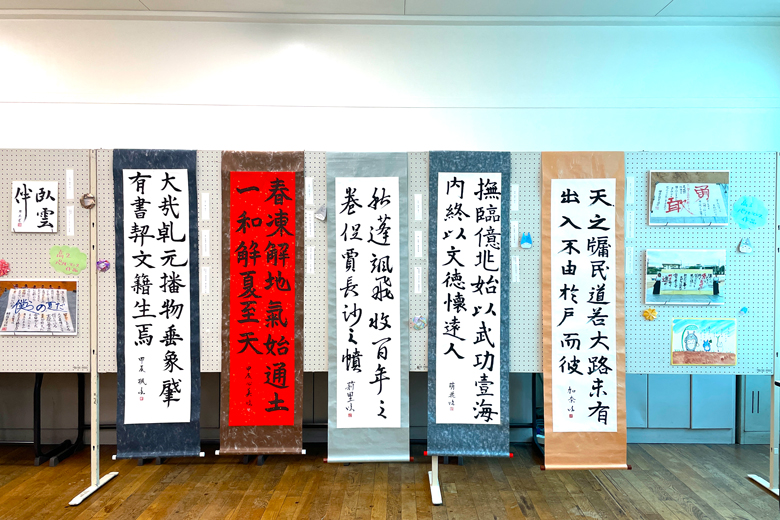 臥雲
伴
僕らの
大哉乹元播物垂象肇
有書契文籍生焉
甲辰
春凍解地氣始通土
一和解夏至天
蓬颯飛收百年之
卷促賈長沙之憤
撫臨億兆始以武功壹海
内終以文德懷遠人
天之牖民道若大路未有
出入不由於戶而彼